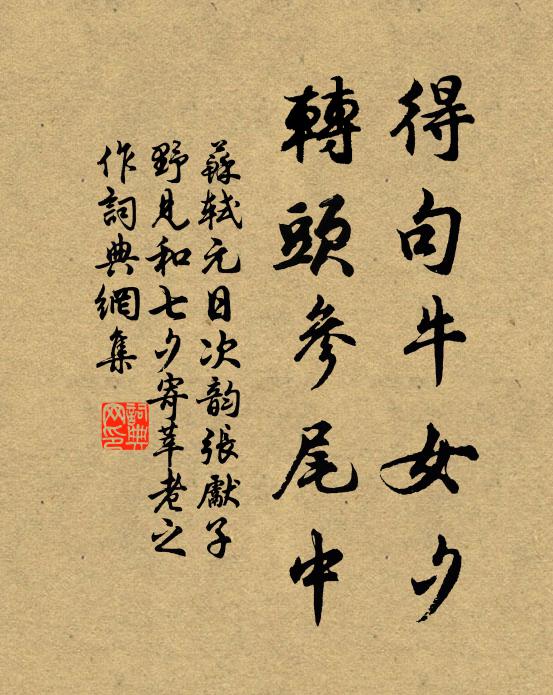 得句牛女夕
轉頭參尾中
蘇軾元日次韵張獻子
野見和七夕寄莘老之
作詞典網集
詞典
网印